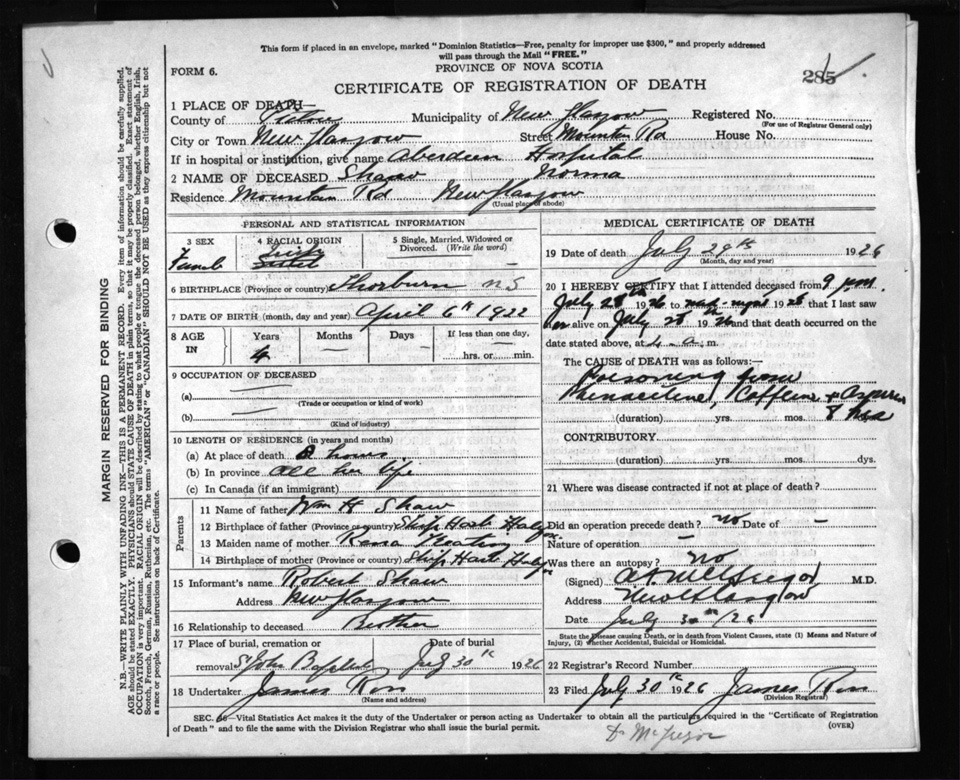 This form if placed in an envelope, marked "Dominion Statistics—Free, penalty for improper use $300," and properly addressed
will pass through the Mail "FREE."
PROVINCE OF NOVA SCOTIA
FORM 6.
CERTIFICATE OF REGISTRATION OF DEATH
285
MARGIN RESERVED FOR BINDING
N.B.—WRITE PLAINLY WITH UNFADING INK—THIS IS A PERMANENT RECORD. Every item of information should be carefully supplied.
AGE should be stated EXACTLY. PHYSICIANS should STATE CAUSE OF DEATH in plain terms, so that it may be properly classified. Exact statement of
OCCUPATION is very important. RACIAL ORIGIN will be described by stating to what people or tongue the deceased person belonged, whether English, Irish,
Scotch, French, German, Russian, Ruthenian, etc. The terms "AMERICAN" or "CANADIAN" SHOULD NOT BE USED as they express citizenship but not
a race or people. See instructions on back of Certificate.
1 PLACE OF DEATH—
County of Pictou Municipality of New Glasgow Registered No.
(For use of Registrar General only)
City or Town New Glasgow Street Mountn Rd House No.
If in hospital or institution, give name Aberdeen Hospital
2 NAME OF DECEASED Shaw Norma
Residence Mountain Rd New Glasgow
(Usual place of abode)
PERSONAL AND STATISTICAL INFORMATION
3 SEX
Female
4 RACIAL ORIGIN
Irish
5 Single, Married, Widowed or
Divorced. (Write the word)
—
6 BIRTHPLACE (Province or country) Thorburn NS
7 DATE OF BIRTH (month, day and year) April 6th 1922
8 AGE
IN
Years
4
Months
—
Days
—
If less than one day.
hrs. or min.
9 OCCUPATION OF DECEASED
(a)
(Trade or occupation or kind of work)
(b)
(Kind of industry)
10 LENGTH OF RESIDENCE (in years and months)
(a) At place of death 8 hours
(b) In province all her life
(c) In Canada (if an immigrant)
Parents
11 Name of father Wm H Shaw
12 Birthplace of father (Province or country) Ship Harb Halifax
13 Maiden name of mother Rena
14 Birthplace of mother (Province or country) Ship Harb Halifax
15 Informant's name Robert Shaw
Address New Glasgow
16 Relationship to deceased Brother
17 Place of burial, cremation or Date of burial
removal St John Baptist July 30th 1926
18 Undertaker James Ross
(Name and address)
MEDICAL CERTIFICATE OF DEATH
19 Date of death July 29th 1926
(Month, day and year)
20 I HEREBY CERTIFY that I attended deceased from 9 pm.
July 28th 1926 to mid-night 1926 that I last saw
her alive on July 28th 1926 and that death occurred on the
date stated above, at 4 a. m.
The CAUSE of DEATH was as follows:—
Poisoning from
Phenacitine, Caffeine & Aspirin
(duration) yrs. mos.
CONTRIBUTORY.
(duration) yrs. mos. dys.
21 Where was disease contracted if not at place of death?
Did an operation precede death? no Date of —
Nature of operation —
Was there an autopsy? No
(Signed) McGregor M.D.
Address New Glasgow
Date July 30th/26
State the Disease causing Death, or in death from Violent Causes, state (1) Means and Nature of
Injury, (2) whether Accidental, Suicidal or Homicidal.
22 Registrar's Record Number
23 Filed July 30th 1926 James Ross
(Division Registrar)
SEC. 66—Vital Statistics Act makes it the duty of the Undertaker or person acting as Undertaker to obtain all the particulars required in the "Certificate of Registration
of Death" and to file the same with the Division Registrar who shall issue the burial permit. (OVER)
Dr McGregor